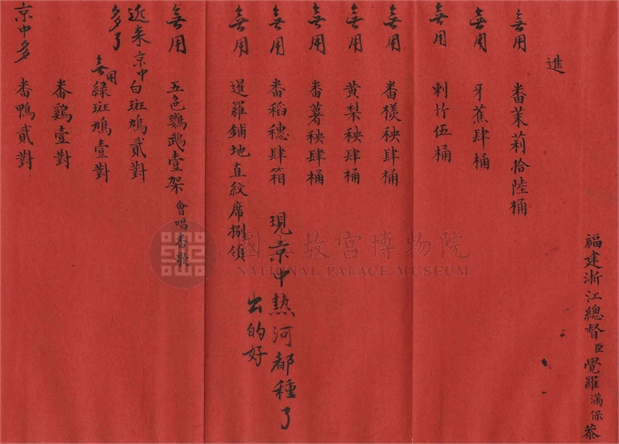 福建浙江總督臣覺羅滿保恭
進
無用 番茉莉拾陸桶
無用 牙蕉肆桶
無用 刺竹伍桶
無用 番檨秧肆桶
無用 黃梨秧肆桶
無用 番薯秧肆桶
無用 番稻穗肆箱 現京中熱河都種了
出的好
無用 暹羅鋪地直紋席捌領
無用 五色鸚鵡壹架 會唱番歌
近来京中多了 白斑鳩貳對
無用 綠斑鳩壹對
番鷄壹對
京中多 番鴨貳對
國立故宮博物院
NATIONAL PALACE MUSEUM